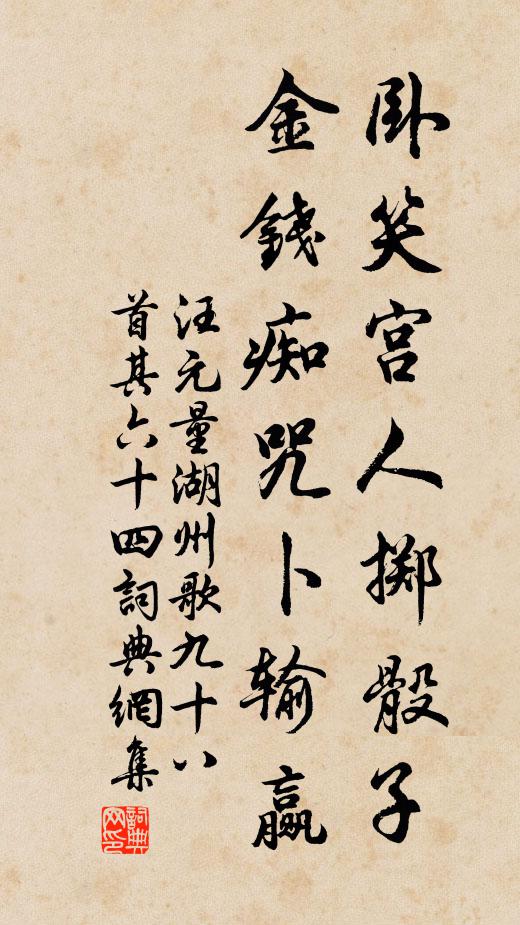 卧笑宫人掷骰子
金錢痴咒卜输贏
汪元量湖州歌九十八
首其六十四詞典網集
詞典网印